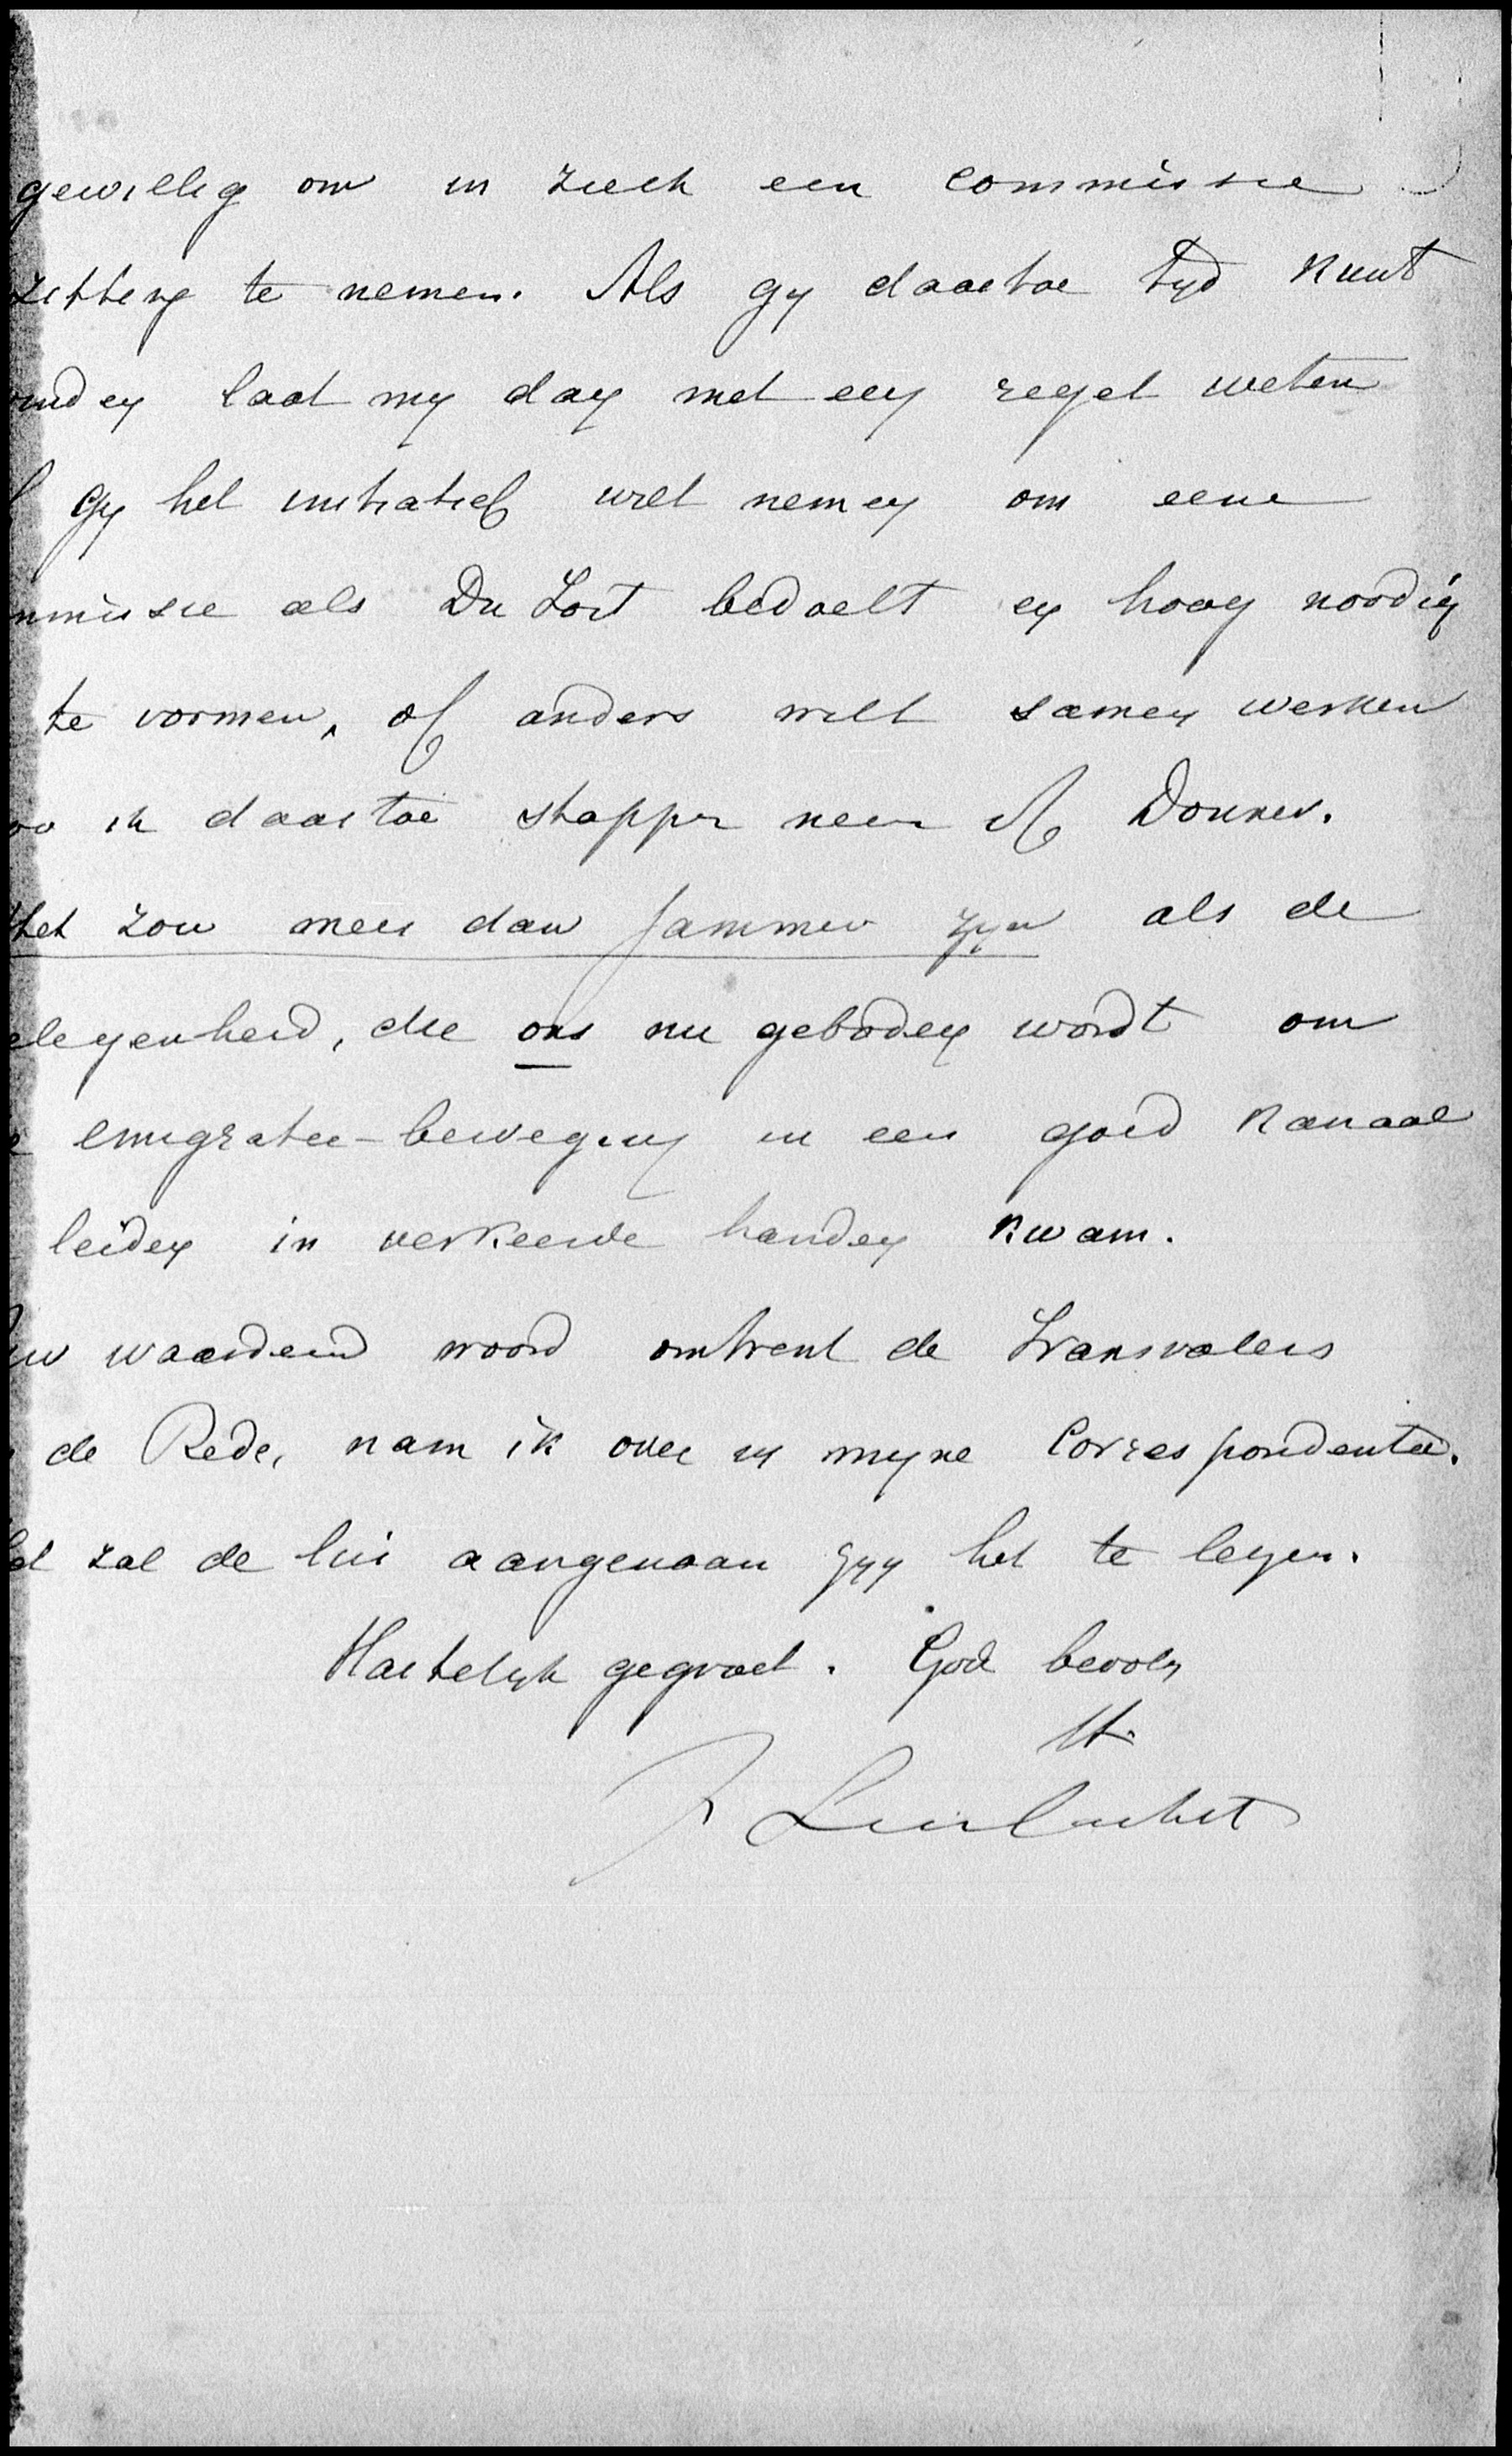 gewillig om in zulk een commissie
zitting te nemen. Als gy daartoe tyd kunt
inden laat my dan met een regel weten
f gy het initiatief wilt nemen om eene
mmissie als Du Toit bedoelt en hoog noodig
te vormen, of anders wilt samen werken
oo ik daartoe stappen neem of Donner.
Het zou meer dan jammer zyn als de
elegenheid, die ons nu geboden wordt om
e emigratie-beweging in een goed kanaal
leiden in verkeerde handen kwam.
Uw waardeerend woord omtrent de Transvalers
de Rede, nam ik over in myne Correspondentie.
et zal de lui aangenaam zyn het te lezen.
Hartelyk gegroet. God bevolen
tt.
F Lion Cachet